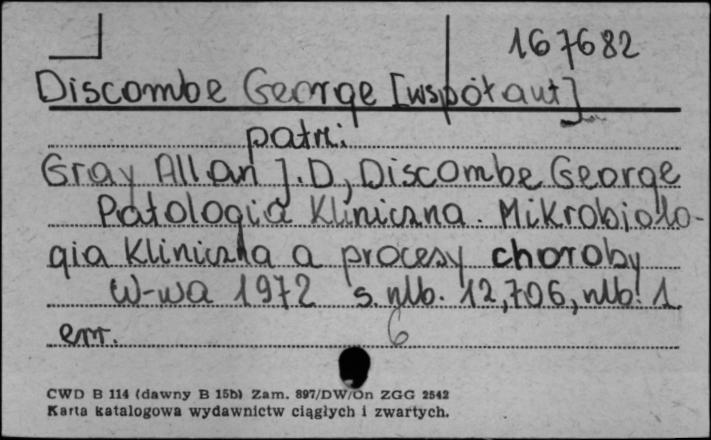 167682
Discombe George [współaut]
patrz:
Gray Allan J.D, Discombe George
Patologia Kliniczna. Mikrobiolo-
gia Kliniczna a procesy choroby
W-wa 1972 s. nlb. 12,706, nlb. 1
err. 6
CWD B 114 (dawny B 15b) Zam. 897/DW/On ZGG 2542
Karta katalogowa wydawnictw ciągłych i zwartych.